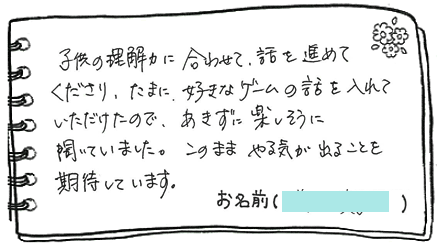 子供の理解力に合わせて、話を進めて
くださり、たまに、好きなゲームの話を入れて
いただけたので、あきずに楽しそうに
聞いていました。このまま やる気が出ることを
期待しています。
お名前( )